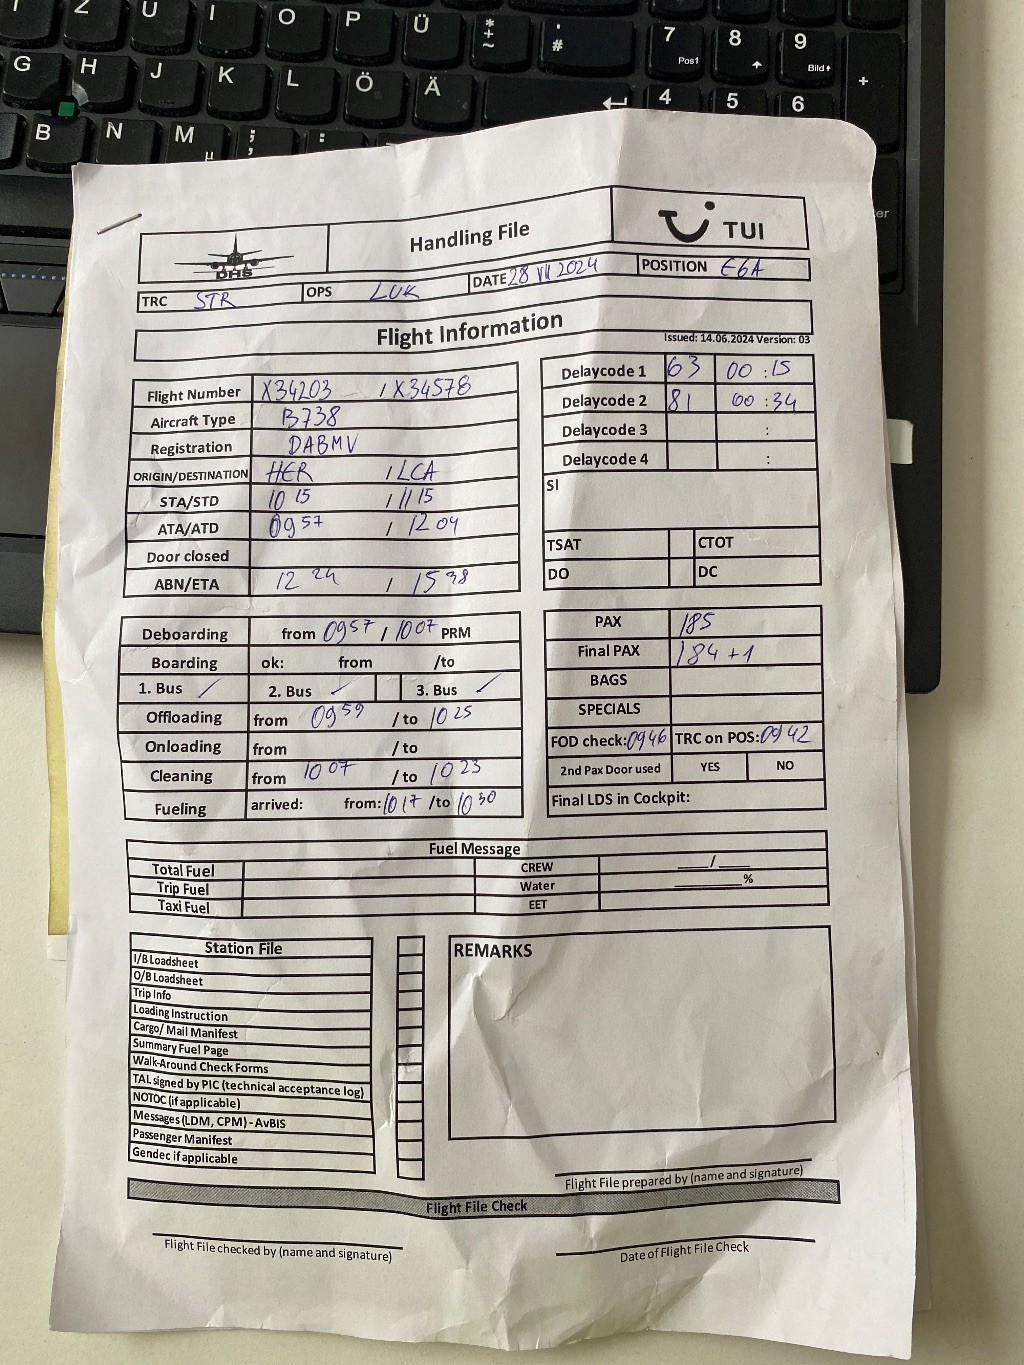 Z U I O P Ü * + ~ ' # 7 Pos1 8 9 Bild
G H J K L Ö Ä 4 5 6 +
B N M µ ; , : .
DHS
Handling File
TUI
TRC STR OPS LUK DATE 28 VII 2024 POSITION E6A
Flight Information
Issued: 14.06.2024 Version: 03
Flight Number X34203 / X34578
Aircraft Type B738
Registration DABMV
ORIGIN/DESTINATION HER / LCA
STA/STD 10 15 / 11 15
ATA/ATD 09 57 / 12 04
Door closed
ABN/ETA 12 24 / 15 38
Delaycode 1 63 00 : 15
Delaycode 2 81 00 : 34
Delaycode 3 :
Delaycode 4 :
SI
TSAT CTOT
DO DC
Deboarding from 09 57 / 10 07 PRM
Boarding ok: from /to
1. Bus / 2. Bus / 3. Bus /
Offloading from 09 59 / to 10 25
Onloading from / to
Cleaning from 10 07 / to 10 23
Fueling arrived: from: 10 17 /to 10 30
PAX 185
Final PAX 184 + 1
BAGS
SPECIALS
FOD check: 09 46 TRC on POS: 09 42
2nd Pax Door used YES NO
Final LDS in Cockpit:
Fuel Message
Total Fuel CREW ___/___
Trip Fuel Water ______%
Taxi Fuel EET
Station File
I/B Loadsheet
O/B Loadsheet
Trip Info
Loading Instruction
Cargo/ Mail Manifest
Summary Fuel Page
Walk-Around Check Forms
TAL signed by PIC (technical acceptance log)
NOTOC (if applicable)
Messages (LDM, CPM) - AvBIS
Passenger Manifest
Gendec if applicable
REMARKS
Flight File prepared by (name and signature)
Flight File Check
Flight File checked by (name and signature)
Date of Flight File Check